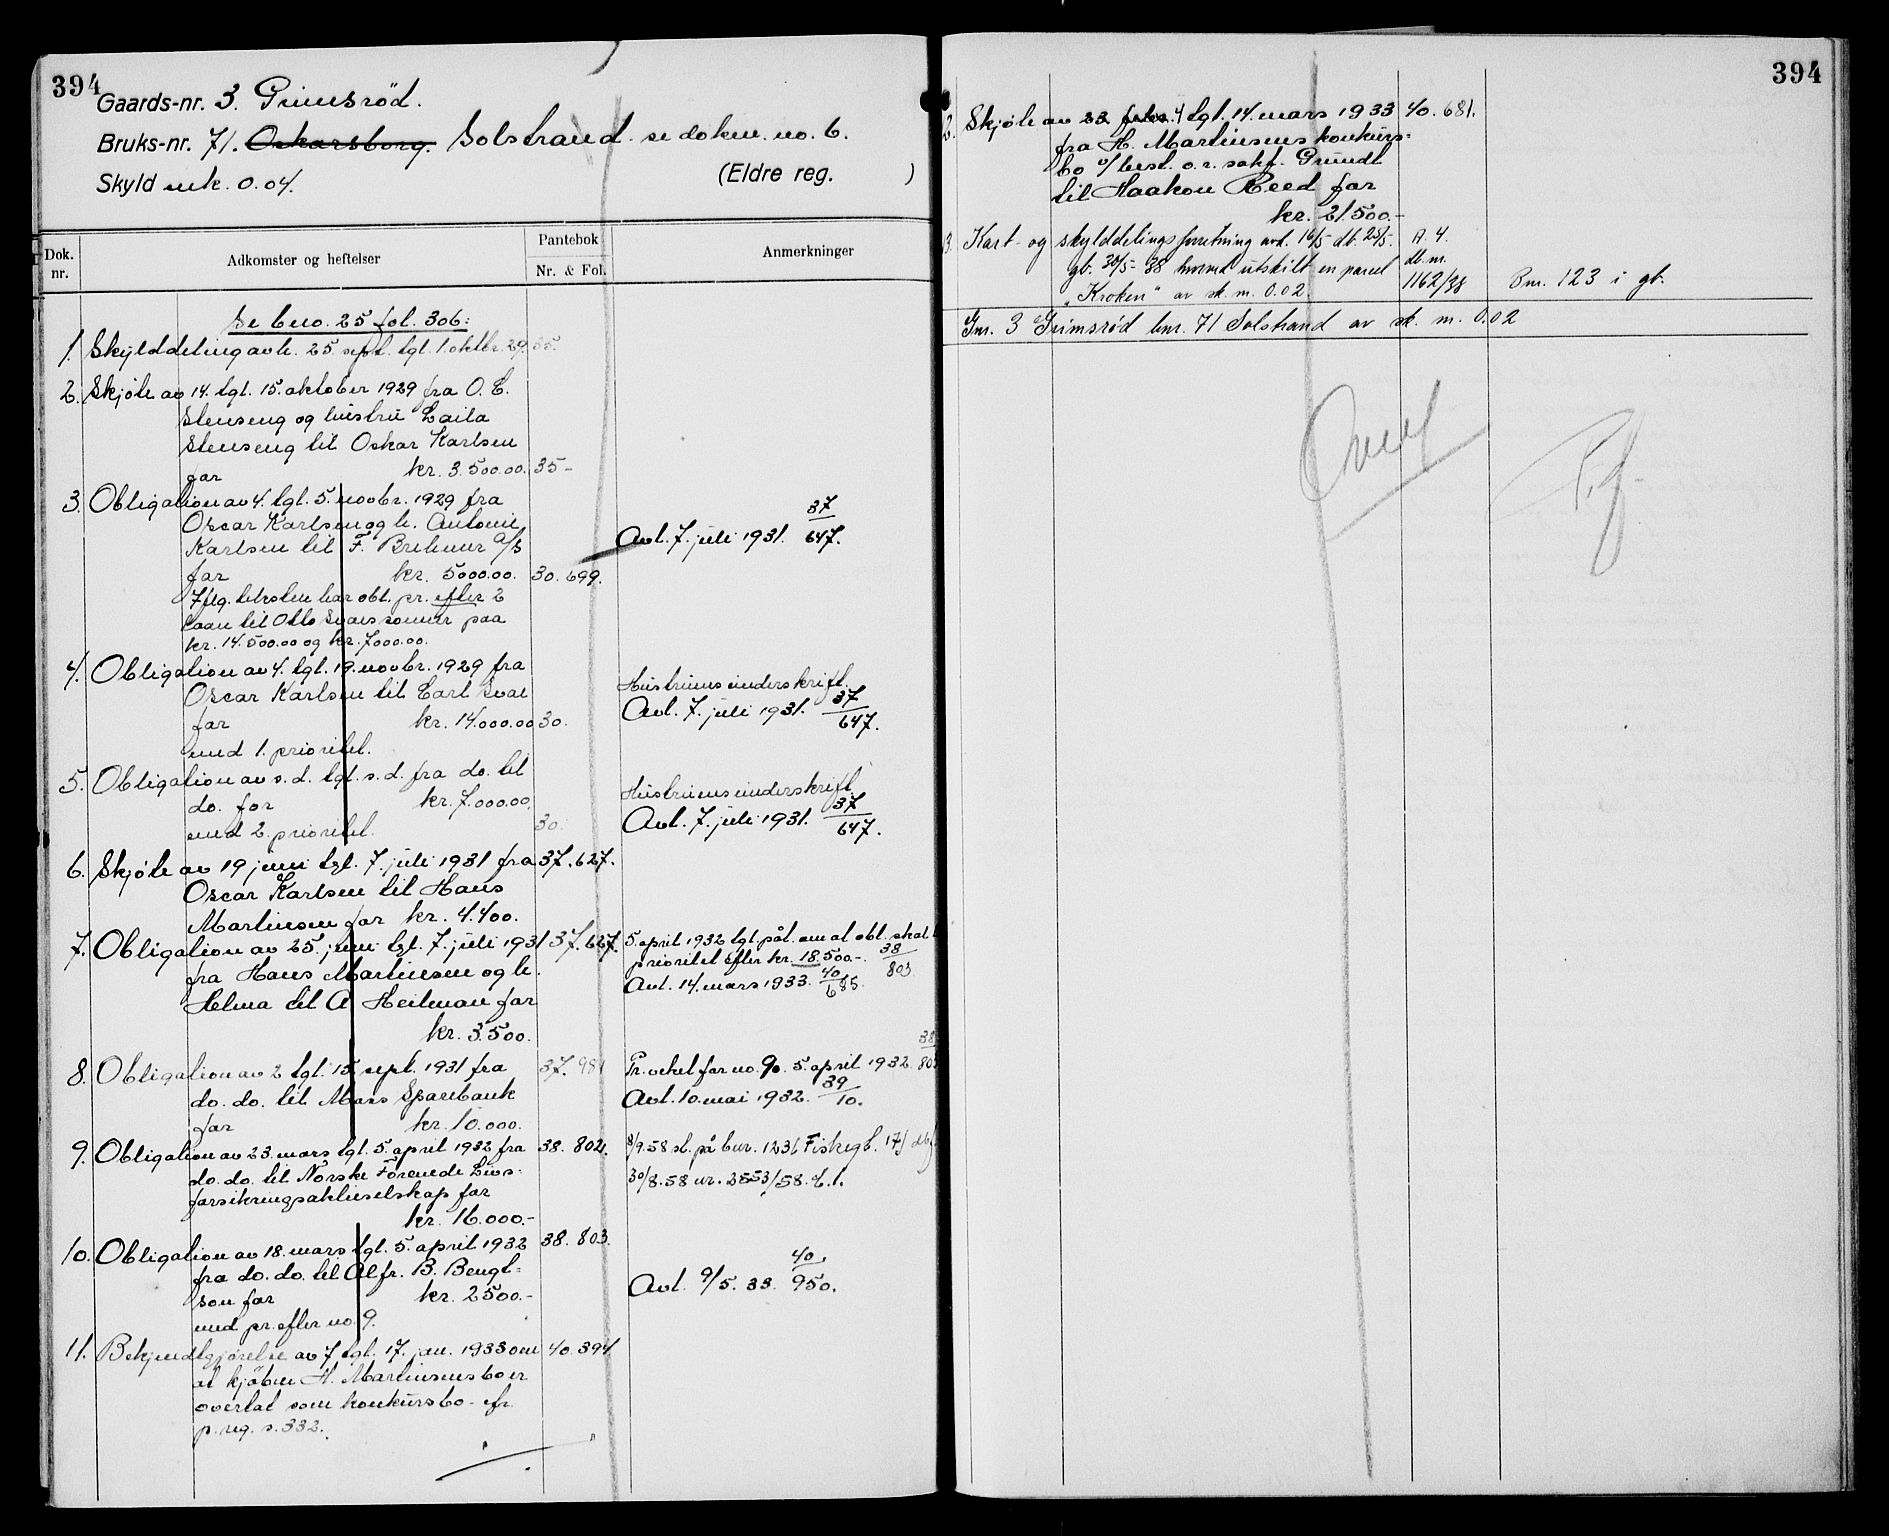 394
Gaards-nr. 3. Grimsröd.
Bruks-nr. 71. Oskarsborg. Solstrand. se dokm. no. 6.
Skyld mk. 0.04. (Eldre reg. )
Dok. nr. Adkomster og heftelser Pantebok Nr. & Fol. Anmerkninger
Se bno. 25 fol. 306:
1. Skylddeling avh. 25. sept. tgl. 1. oktbr. 29. 35.
2. Skjöte av 14. tgl. 15. oktober 1929 fra O. E.
Stenseng og hustru Laila
Stenseng til Oskar Karlsen
for kr. 3.500.00. 35-
3. Obligation av 4. tgl. 5. novbr. 1929 fra
Oscar Karlsen og h. Antonie
Karlsen til F. Brehmer A/S
for kr. 5000.00. 30. 699.
Iflg. attesten har obl. pr. efter 2
laan til Otto Svaes sönner paa
kr. 14.500.00 og kr. 7000.00.
Avl. 7. juli 1931. 37/647.
4. Obligation av 4. tgl. 19. novbr. 1929 fra
Oscar Karlsen til Carl Svae
for kr. 14.000.00 30.
med 1. prioritet.
Hustruens underskrift.
Avl. 7. juli 1931. 37/647.
5. Obligation av s.d. tgl. s.d. fra do. til
do. for kr. 7.000.00.
med 2. prioritet. 30.
Hustruens underskrift.
Avl. 7. juli 1931. 37/647.
6. Skjöte av 19 juni tgl. 7. juli 1931 fra 37. 627.
Oscar Karlsen til Hans
Martinsen for kr. 4.400.
7. Obligation av 25. juni tgl. 7. juli 1931 37. 627.
fra Hans Martinsen og h.
Helma til A Heilman for
kr. 3.500.
5. april 1932 tgl. påt. om at obl. skal
prioritet efter kr. 18.500.-. 38/803
Avl. 14. mars 1933. 40/685.
8. Obligation av 2 tgl. 15. sept. 1931 fra 37. 981
do. do. til Moss Sparebank
for kr. 10.000.
Pr. veket for no. 9. 5. april 1932. 38/803
Avl. 10. mai 1932. 39/10.
9. Obligation av 23. mars tgl. 5. april 1932 fra 38. 802.
do. do. til Norske Forenede Livs-
forsikringsaktieselskap for
kr. 16.000.-
8/9.58 sl. på bnr. 123 i Fiskegt. 17
30/8.58 nr. 2553/58. d.l.
10. Obligation av 18. mars tgl. 5. april 1932 38. 803.
fra do. do. til Alfr. B. Bengt-
son for kr. 2500.-
med pr. efter no. 9.
Avl. 9/5. 33. 40/950.
11. Bekjendtgjörelse av 7 tgl. 17. jan. 1933 om 40. 394
at kjöbm. H. Martinsens bo er
overtat som konkursbo - cfr.
p. reg. s. 332.
394
2. Skjöte av 23 febr. tgl. 14. mars 1933 40. 681.
fra H. Martinsens konkurs-
bo v/ best. o.r. sakf. Grundt
til Haakon Reed for
kr. 21.500.-
3. Kart- og skylddelingsforretning avh. 16/5 db. 25/5. A. 4.
gb. 30/5-38 hvorved utskilt en parcel db. nr.
"Kroken" av sk. m. 0.02. 1162/38 Bnr. 123 i gb.
Gnr. 3 Grimsrød bnr. 71 Solstrand av sk. m. 0.02